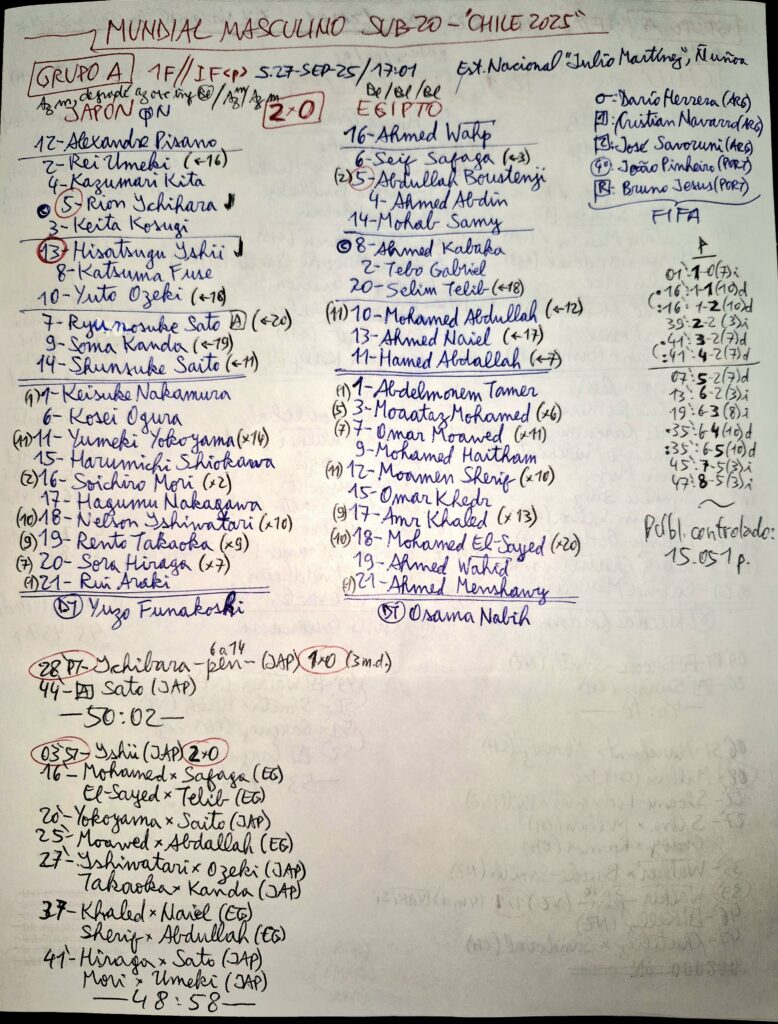 MUNDIAL MASCULINO SUB-20 - "CHILE 2025"
GRUPO A 1F//IF<p> S.27-SEP-25/17:01 Est. Nacional "Julio Martínez", Ñuñoa
Be/Be/Be
JAPÓN 2×0 EGIPTO
12-Alexandre Pisano
2-Rei Umeki (←16)
4-Kazunari Kita
5-Rion Ichihara
3-Keita Kosugi
13-Hisatsugu Ishii
8-Katsuma Fuse
10-Yuto Ozeki (←18)
7-Ryunosuke Sato A (←20)
9-Soma Kanda (←19)
14-Shunsuke Saito (←11)
(1) 1-Keisuke Nakamura
6-Kosei Ogura
(11) 11-Yumeki Yokoyama (×14)
15-Harumichi Shiokawa
(2) 16-Soichiro Mori (×2)
17-Hagumu Nakagawa
(10) 18-Nelson Ishiwatari (×10)
(9) 19-Rento Takaoka (×9)
(7) 20-Sora Hiraga (×7)
(1) 21-Rui Araki
DT Yuzo Funakoshi
16-Ahmed Wahp
6-Seif Safaga (←3)
(2) 5-Abdullah Boustenji
4-Ahmed Abdin
14-Mohab Samy
8-Ahmed Kabaka
2-Tebo Gabriel
20-Selim Telib (←18)
(11) 10-Mohamed Abdullah (←12)
13-Ahmed Naiel (←17)
11-Hamed Abdallah (←7)
(1) 1-Abdelmonem Tamer
(5) 3-Moaataz Mohamed (×6)
(7) 7-Omar Moawed (×11)
9-Mohamed Haitham
(11) 12-Moamen Sherif (×10)
15-Omar Khedr
(9) 17-Amr Khaled (×13)
(10) 18-Mohamed El-Sayed (×20)
19-Ahmed Wahid
(1) 21-Ahmed Menshawy
DT Osama Nabih
o-Darío Herrera (ARG)
1: Cristian Navarro (ARG)
2: José Savorani (ARG)
4º: João Pinheiro (PORT)
R: Bruno Jesus (PORT)
FIFA
P
01'1-0(7)i
16'1-1(10)d
16'1-2(10)d
39'2-2(3)i
41'3-2(7)d
41'4-2(7)d
07'5-2(7)d
13'6-2(3)i
19'6-3(8)i
35'6-4(10)d
35'6-5(10)d
45'7-5(3)i
47'8-5(3)i
Públ. controlado:
15.051 p.
28'PT-Ichihara-pen-(JAP) 1×0 (3 m.d.)
6 a 14
44-A Sato (JAP)
—50:02—
03'ST-Ishii (JAP) 2×0
16'-Mohamed×Safaga (EG)
El-Sayed×Telib (EG)
20'-Yokoyama×Saito (JAP)
25'-Moawed×Abdallah (EG)
27'-Ishiwatari×Ozeki (JAP)
Takaoka×Kanda (JAP)
37-Khaled×Naiel (EG)
Sherif×Abdullah (EG)
41'-Hiraga×Sato (JAP)
Mori×Umeki (JAP)
—48:58—